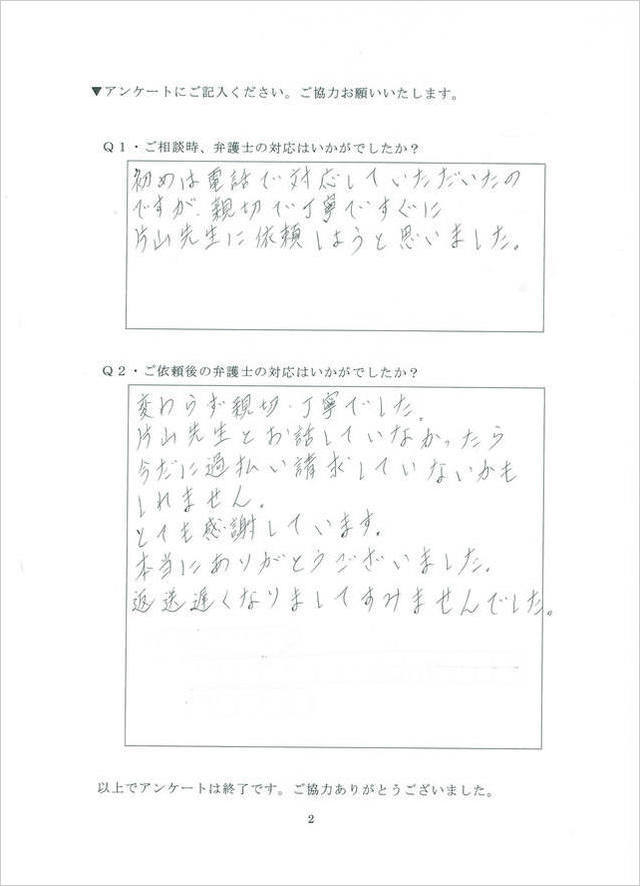 ▼アンケートにご記入ください。ご協力お願いいたします。
Ｑ１・ご相談時、弁護士の対応はいかがでしたか？
初めは電話で対応していただいたの
ですが、親切で丁寧ですぐに
片山先生に依頼しようと思いました。
Ｑ２・ご依頼後の弁護士の対応はいかがでしたか？
変わらず親切・丁寧でした。
片山先生とお話していなかったら
今だに過払い請求していないかも
しれません。
とても感謝しています。
本当にありがとうございました。
返送遅くなりましてすみませんでした。
以上でアンケートは終了です。ご協力ありがとうございました。
2